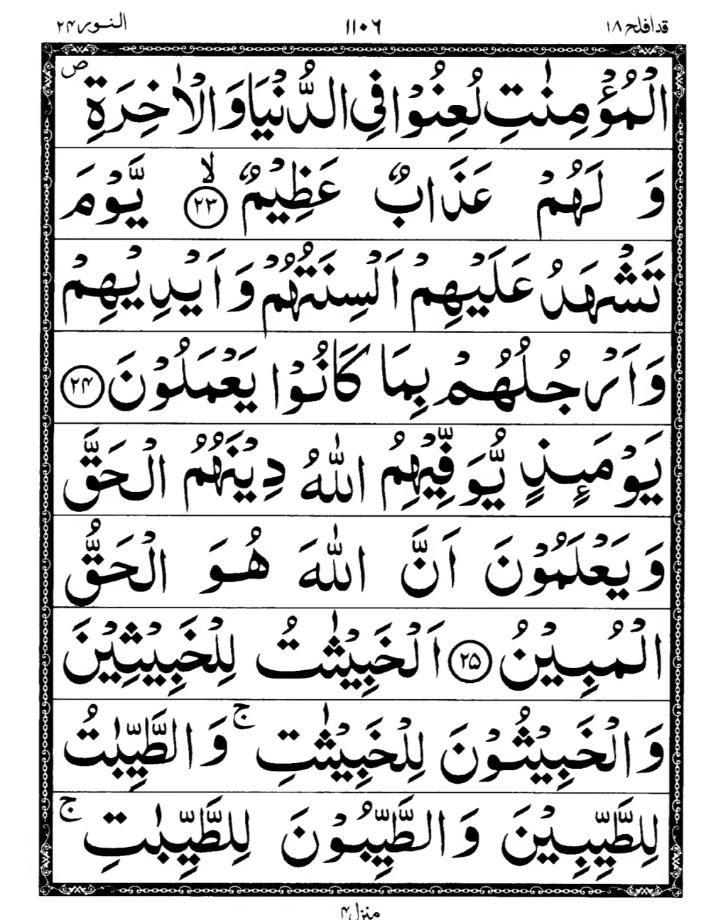 قدافلح ۱۸ ۱۱۰۶ النور ۲۴
الْمُؤْمِنٰتِ لُعِنُوْا فِی الدُّنْیَا وَالْاٰخِرَةِ ۪ص
وَ لَهُمْ عَذَابٌ عَظِیْمٌ ۙ﴿۲۳﴾ یَّوْمَ
تَشْهَدُ عَلَیْهِمْ اَلْسِنَتُهُمْ وَ اَیْدِیْهِمْ
وَاَرْجُلُهُمْ بِمَا كَانُوْا یَعْمَلُوْنَ ﴿۲۴﴾
یَوْمَىِٕذٍ یُّوَفِّیْهِمُ اللّٰهُ دِیْنَهُمُ الْحَقَّ
وَیَعْلَمُوْنَ اَنَّ اللّٰهَ هُوَ الْحَقُّ
الْمُبِیْنُ ﴿۲۵﴾ اَلْخَبِیْثٰتُ لِلْخَبِیْثِیْنَ
وَالْخَبِیْثُوْنَ لِلْخَبِیْثٰتِ ۚ وَ الطَّیِّبٰتُ
لِلطَّیِّبِیْنَ وَ الطَّیِّبُوْنَ لِلطَّیِّبٰتِ ۚ
منزل ۴